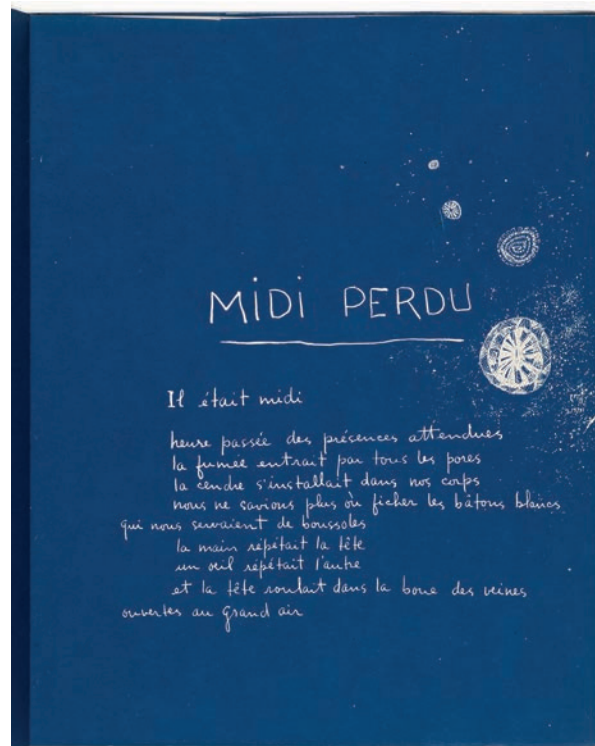 MIDI PERDU
Il était midi
heure passée des présences attendues
la fumée entrait par tous les pores
la cendre s'installait dans nos corps
nous ne savions plus où ficher les bâtons blancs
qui nous servaient de boussoles
la main répétait la tête
un oeil répétait l'autre
et la tête roulait dans la boue des veines
ouvertes au grand air